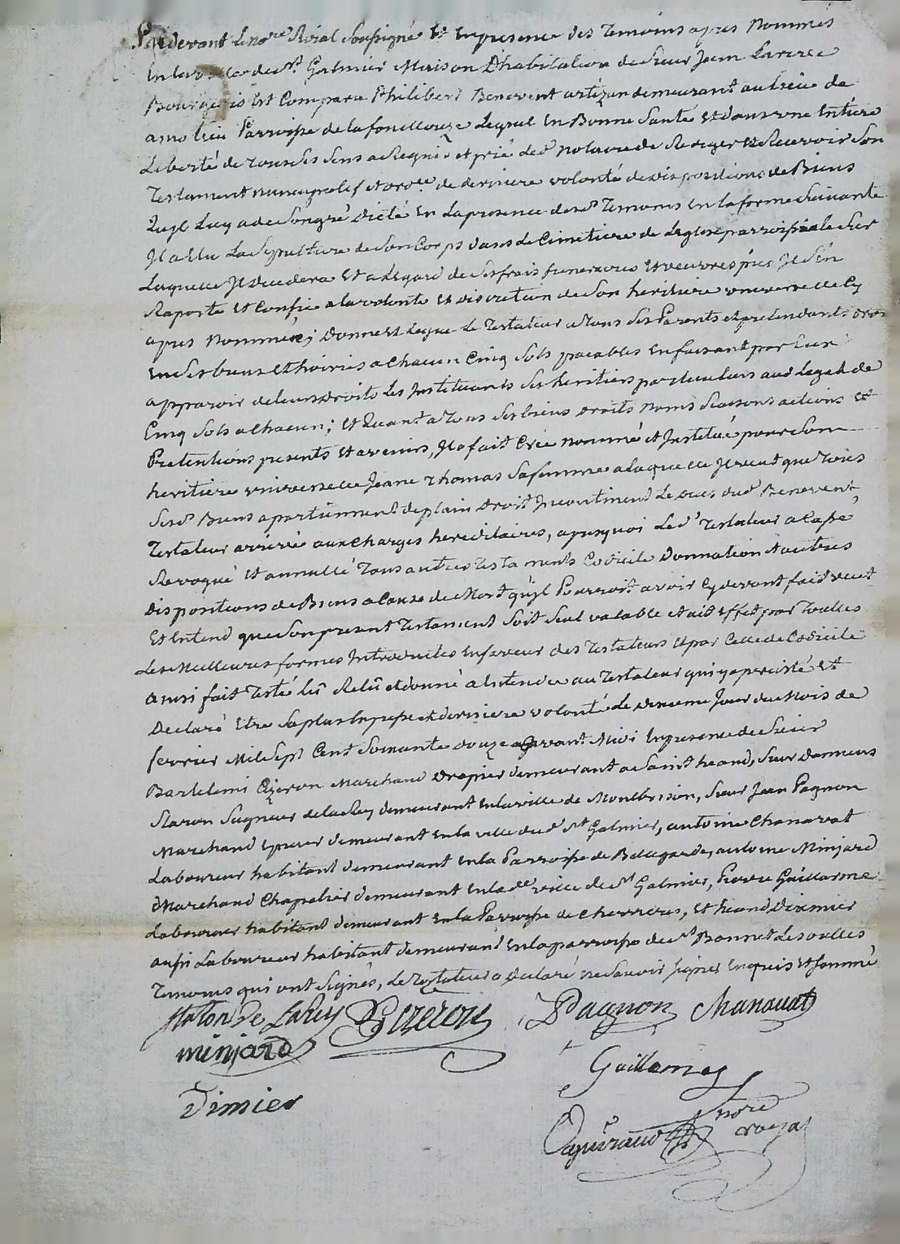 Pardevant Le no.re Roial Soussigné Et En presence des Temoins apres Nommés
En la ville de St Galmier Maison D'habitation de Sieur Jean Larcee
Bourgeois Est Comparu Philibert Benevent artizan demeurant au lieu de
Parroisse de la fouillouze Lequel En Bonne Santé Et dans une Entiere
Liberté de Tous Ses Sens a Requis et prié led. Notaire de Rediger Et Recevoir Son
Testament nuncupatif et ordre de derniere volonté de dispositions de Biens
Quil Luy a de Son gré Dicté En La presence desd. Temoins En la forme Suivante
Il a Elu La Sepulture de Son Corps dans Le Cimetiere de L'Eglise parroissiale Sur
Laquelle Il decedera Et a L'egard de Ses frais funeraires Et oeuvres pies Il S'en
Raporte Et Confie a la volonté Et discretion de Son heritiere universelle Cy
apres Nommée; Donne Et Legue Le Testateur a Tous Ses Parents et pretendants droits
En Ses biens Et hoiries a Chacun Cinq Sols paiables En faisant par Eux
apparoir de leurs Droits Les Instituants Ses heritiers particuliers aud. Legat de
Cinq Sols a Chacun; Et Quant a Tous Ses biens Droits noms Raisons actions Et
Pretentions presents Et avenirs, Il a fait Créé Nommé et Institué pour Son
heritiere universelle Jeane Thomas Sa femme a laquelle Il veut que
Sesd. Biens apartiennent de plain Droit Incontinend Le deces dud. Benevent
Testateur arrivé aux Charges hereditaires, apresquoi Led. Testateur a Cassé
Revoqué Et annullé Tous autres Testaments Codicile Donnation Et autres
Dispositions de Biens a Cause de Mort qu'il Pourroit avoir Cy devant fait veut
Et Entend que Son present Testament Soit Seul valable et ait Effet par Touttes
Les Meilleures formes Introduites En faveur des Testateurs Et par Celle de Codicile
ainsi fait Testé lû Relû et donné a Entendre au Testateur qui y a persisté Et
Declaré Etre Sa plus Expresse et derniere volonté Le Jour du Mois de
fevrier Mil Sept Cent Soixante douze avant Midi En presence de Sieur
Bartelemi Cizeron Marchand Drapier demeurant a Saint heand, Sieur Damiens
Staron Seigneur de la Rey demeurant En la ville de Montbrison, Sieur Jean Pagnon
Marchand Epicier demeurant En la ville dud. St Galmier, antoine Chanavat
Laboureur habitant demeurant En la Parroisse de Bellegarde, antoine Minjard
Marchand Chapelier demeurant En lade. ville de St Galmier, Pierre Guillarme
Laboureur habitant demeurant En la Parroisse de Chevrieres, Et heand Dimier
aussi Laboureur habitant demeurant En la parroisse de St Bonnet Les oulles
Temoins qui ont Signés, Le Testateur a Declaré ne Savoir Signer Enquis Et Sommé
Staron De La Rey Cizeron Pagnon Chanavat
minjard
Guillarme
Dimier
nore
royal